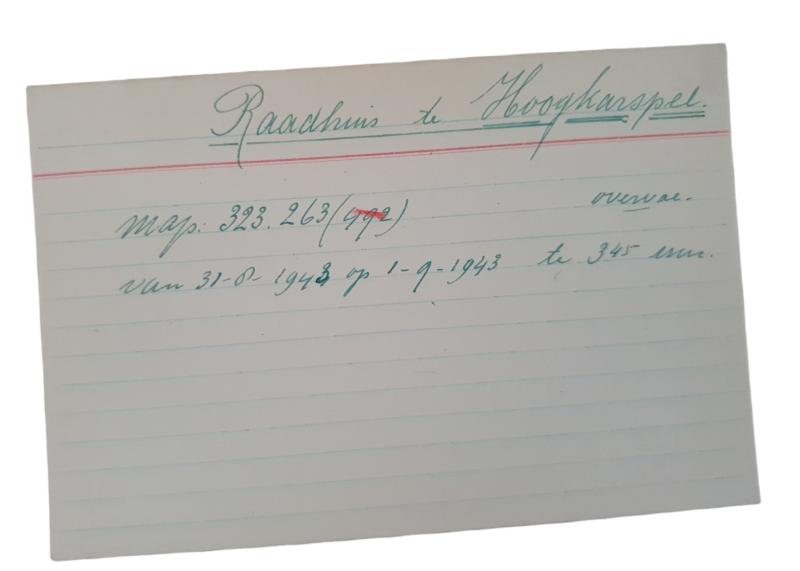 Raadhuis te Hoogkarspel.
map. 323.263 (492) overval.
van 31-8-1943 op 1-9-1943 te 345 uur.